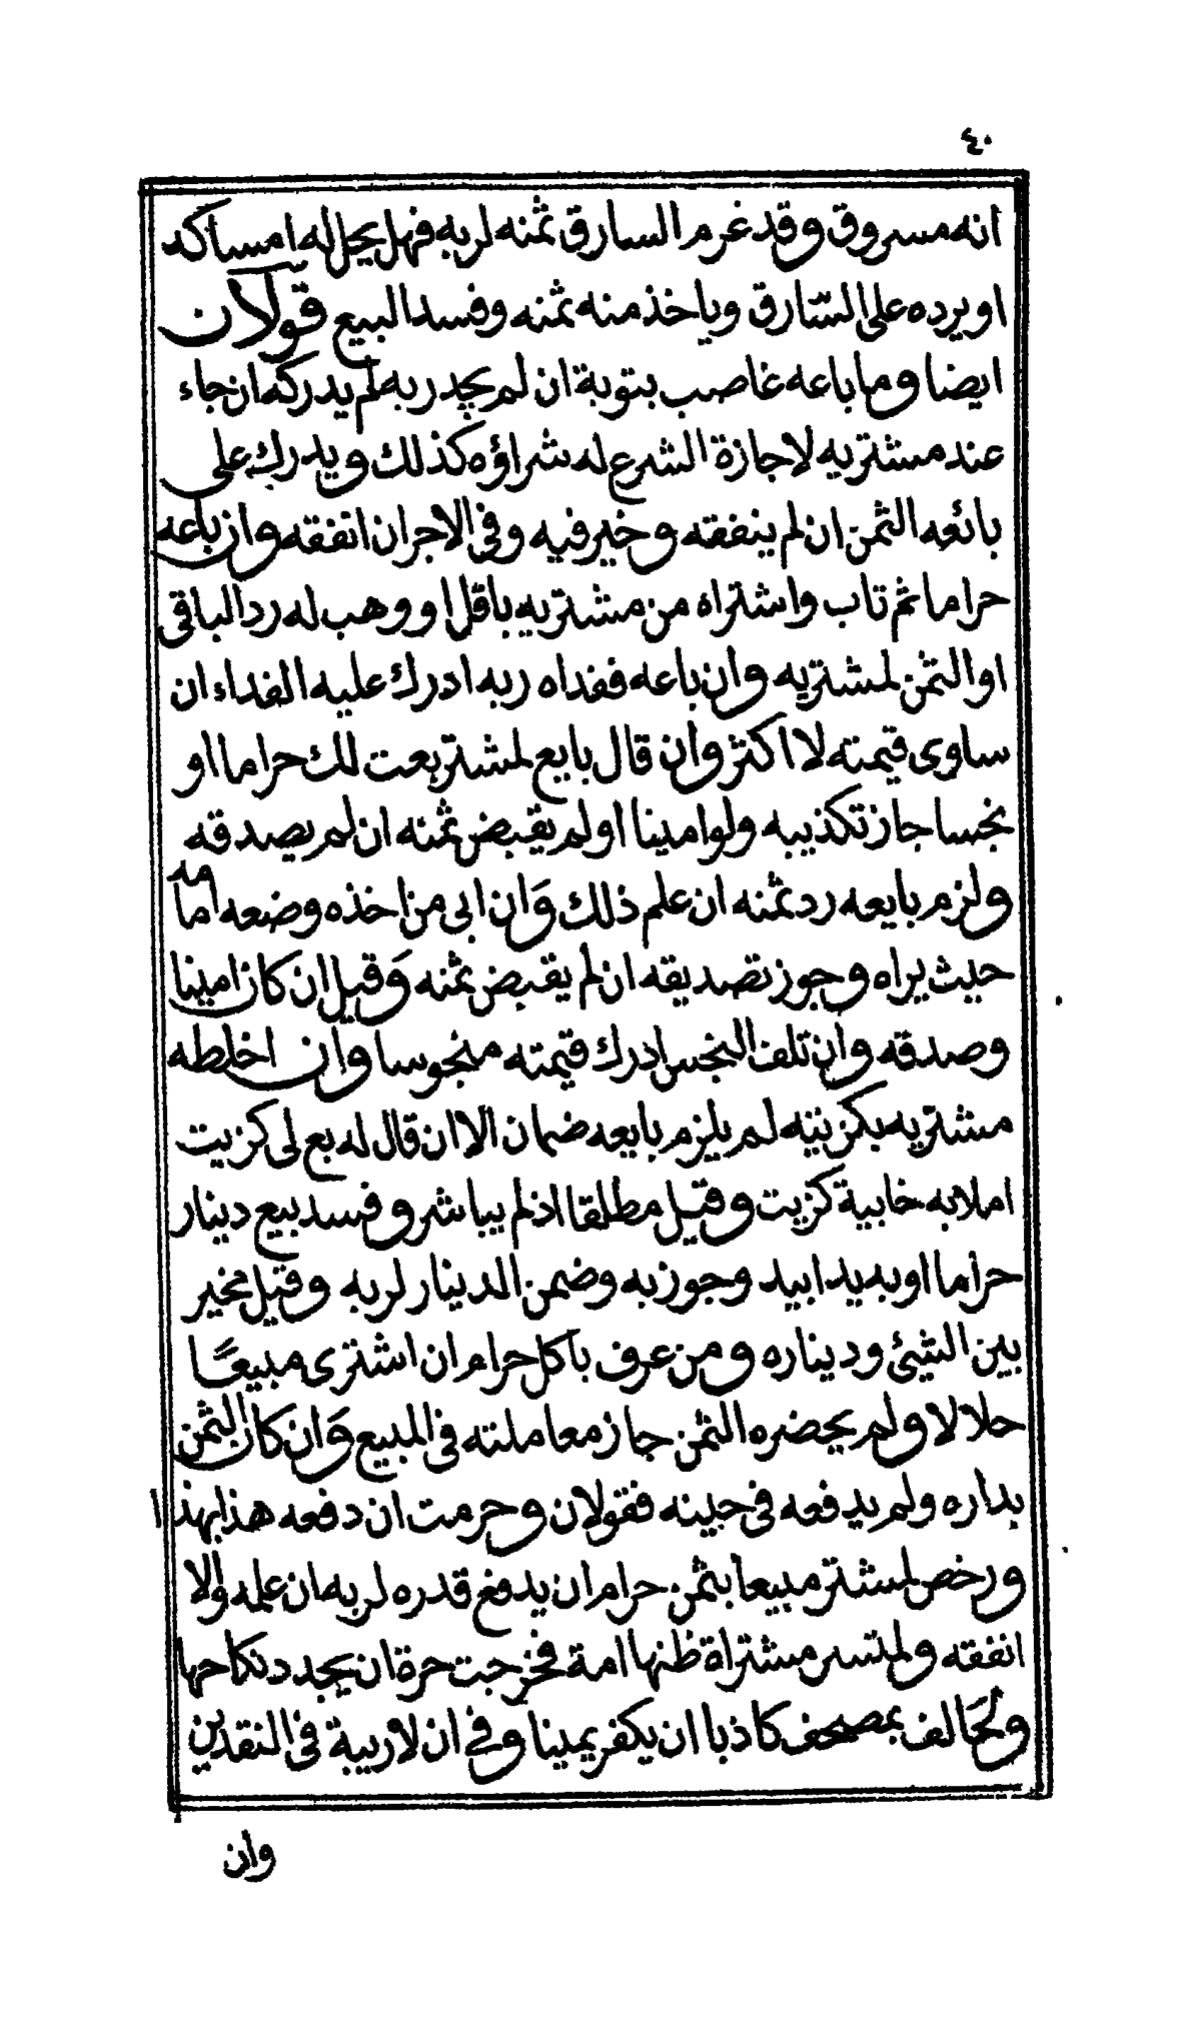 ٤٠
انه مسروق وقد غرم السارق ثمنه لربه فهل يحل له امساكه
او يرده على السّارق وياخذ منه ثمنه وفسد البيع قولان
ايضا وما باعه غاصب بتوبة ان لم يجد ربه لم يدركه ان جاء
عند مشتريه لاجازة الشرع له شراؤه كذلك ويدرك على
بائعه الثمن ان لم ينفقه وخير فيه وفى الاجر ان انفقه وان باعه
حراما ثم تاب واشتراه من مشتريه باقل او وهب له رد الباقى
او الثمن لمشتريه وان باعه ففداه ربه ادرك عليه الفداء ان
ساوى قيمته لا اكثر وان قال بايع لمشتر بعت لك حراما او
نجسا جاز تكذيبه ولو امينا او لم يقبض ثمنه ان لم يصدقه
ولزم بايعه رد ثمنه ان علم ذلك وَان ابى من اخذه وضعه امامه
حيث يراه وجوز تصديقه ان لم يقبض ثمنه وَقيل ان كان امينا
وصدقه وان تلف النجس ادرك قيمته منجوسا وان اخلطه
مشتريه بكزيته لم يلزم بايعه ضمان الا ان قال له بع لى كزيت
املا به خابية كزيت وقيل مطلقا اذ لم يباشر وفسد بيع دينار
حراما او به يدا بيد وجوز به وضمن الدينار لربه وقيل مخير
بين الشئ وديناره ومن عرف باكل حرام ان اشترى مبيعًا
حلالا ولم يحضره الثمن جاز معاملته فى المبيع وَان كان الثمن
بداره ولم يدفعه فى حينه فقولان وحرمت ان دفعه هذا بهذا
ورخص لمشتر مبيعا بثمن حرام ان يدفع قدره لربه ان علمه والا
انفقه ولمتسر مشتراة ظنها امة فخرجت حرة ان يجدد نكاحها
ولحَالف بمصحف كاذبا ان يكفر يمينا وفى ان لا ريبة فى النقدين
وان